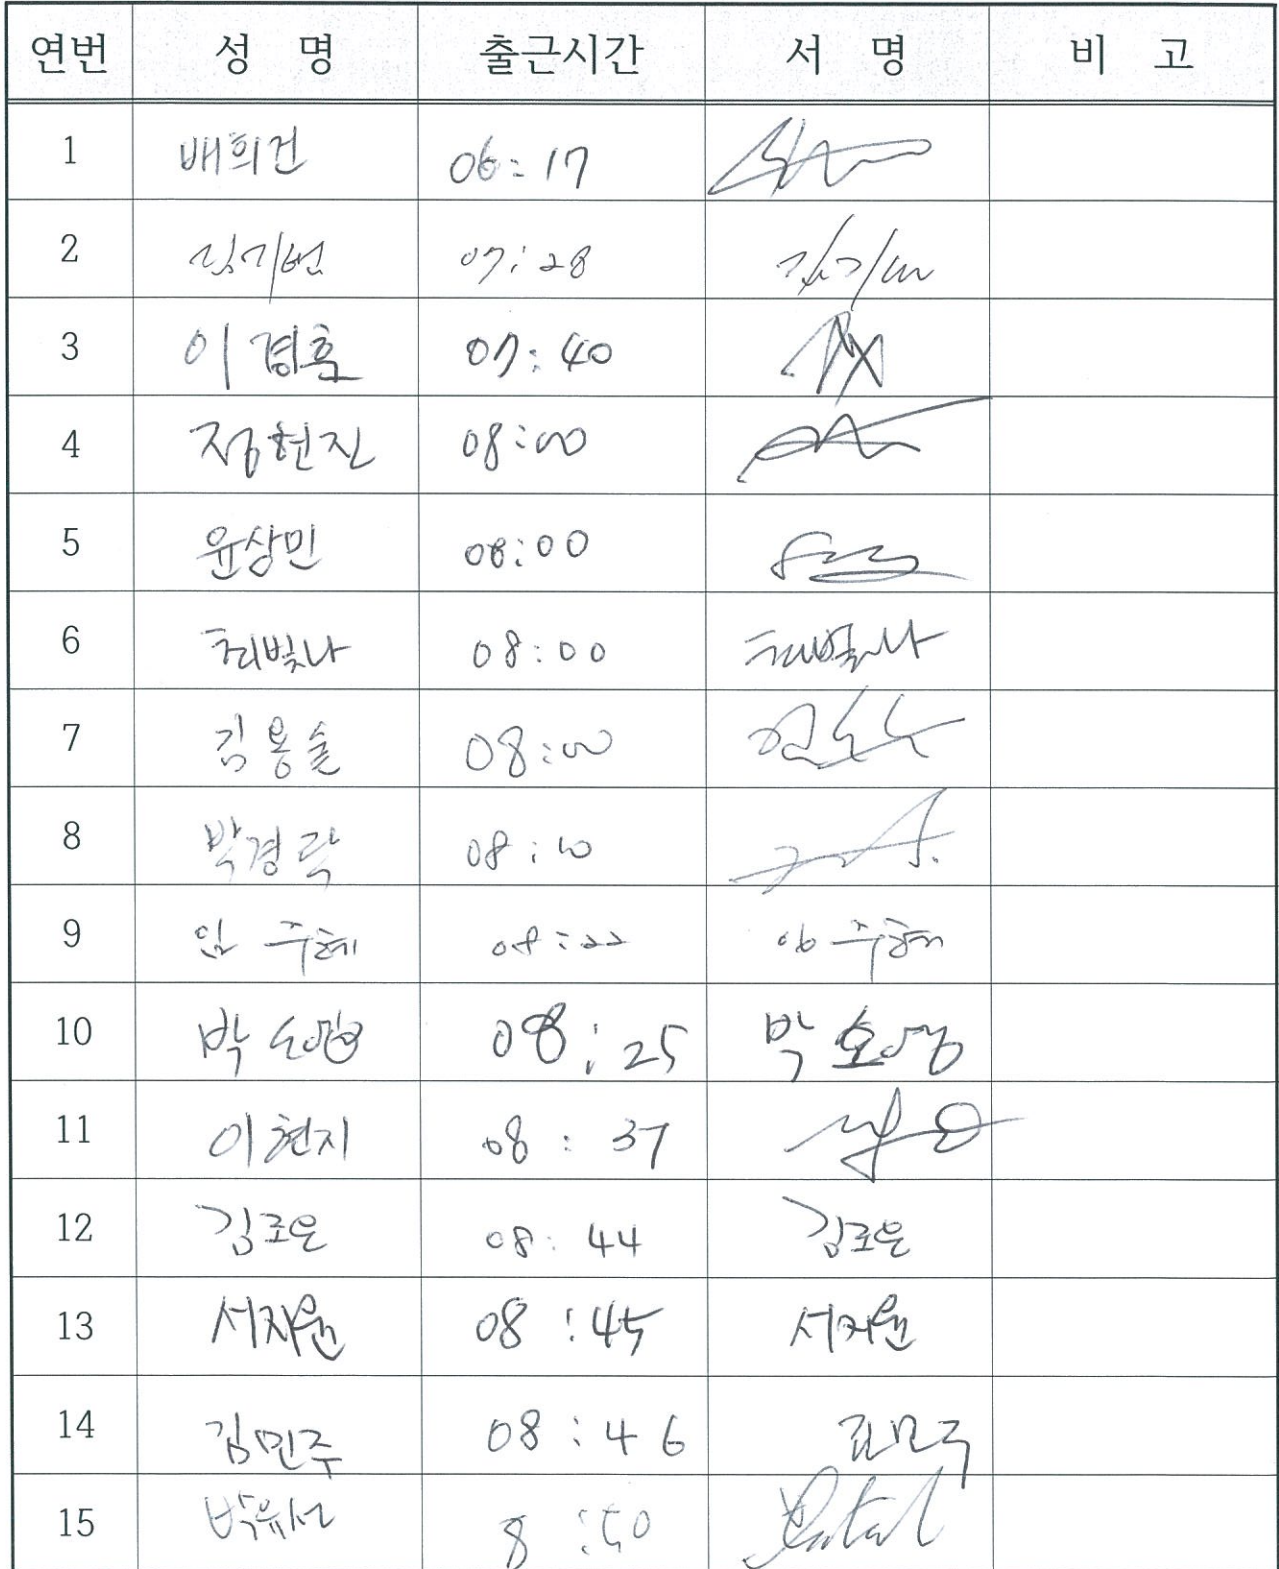 연번 성 명 출근시간 서 명 비 고
1 배희건 06:17
2 김기범 07:28
3 이경훈 07:40
4 정현진 08:00
5 윤상민 08:00
6 최빛나 08:00 최빛나
7 김용술 08:00
8 박경락 08:10
9 임주혜 08:22 임주혜
10 박소영 08:25 박소영
11 이현지 08:37
12 김조은 08:44 김조은
13 서지윤 08:45 서지윤
14 김민주 08:46 김민주
15 박유선 8:50